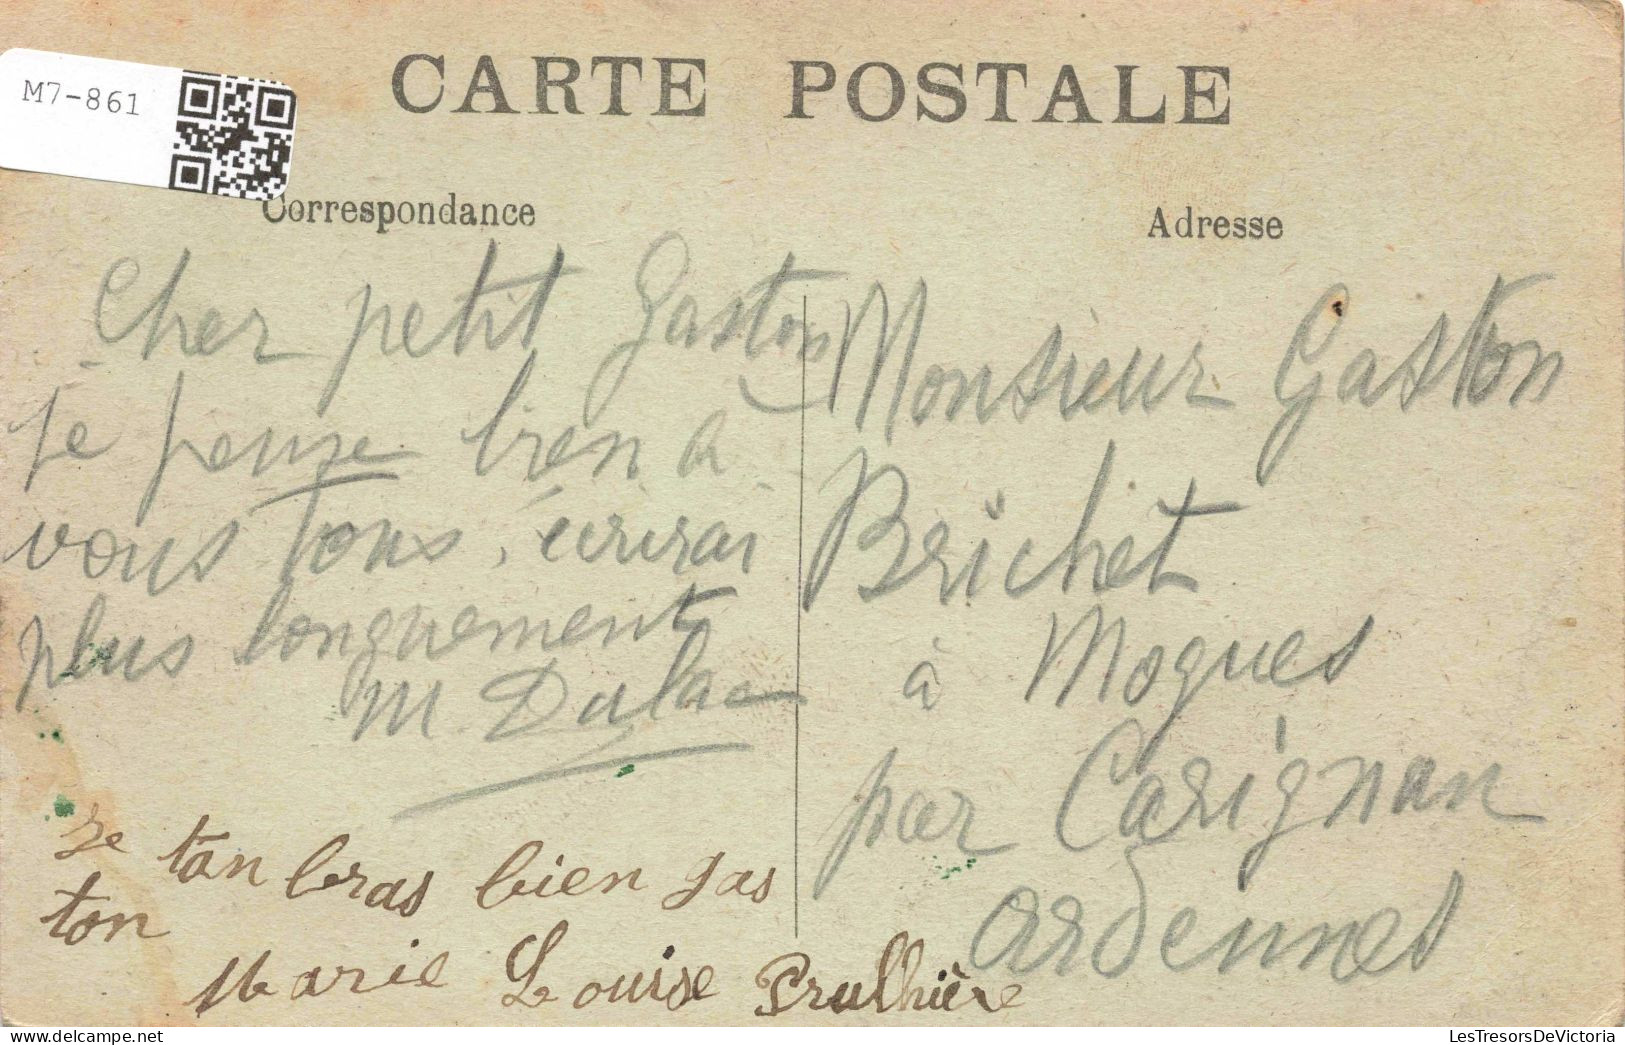 M7-861
CARTE POSTALE
Correspondance
Adresse
Cher petit Gaston
Je pense bien à
vous tous, écrirai
plus longuement
M. Dulac
Monsieur Gaston
Brichet
à Mogues
par Carignan
Ardennes
Je tan bras bien gas
ton
Marie Louise Prulhière
LesTresorsDeVictoria